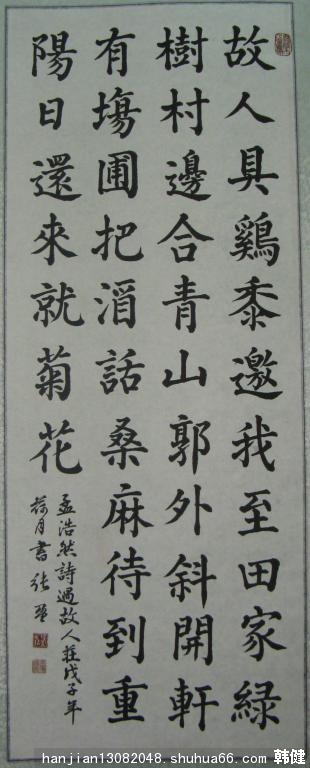 故人具鷄黍邀我至田家緑
樹村邊合青山郭外斜開軒
有塲圃把酒話桑麻待到重
陽日還來就菊花
孟浩然詩過故人莊戊子年
荷月書張
hanjian13082048. shuhua66. com 韩健